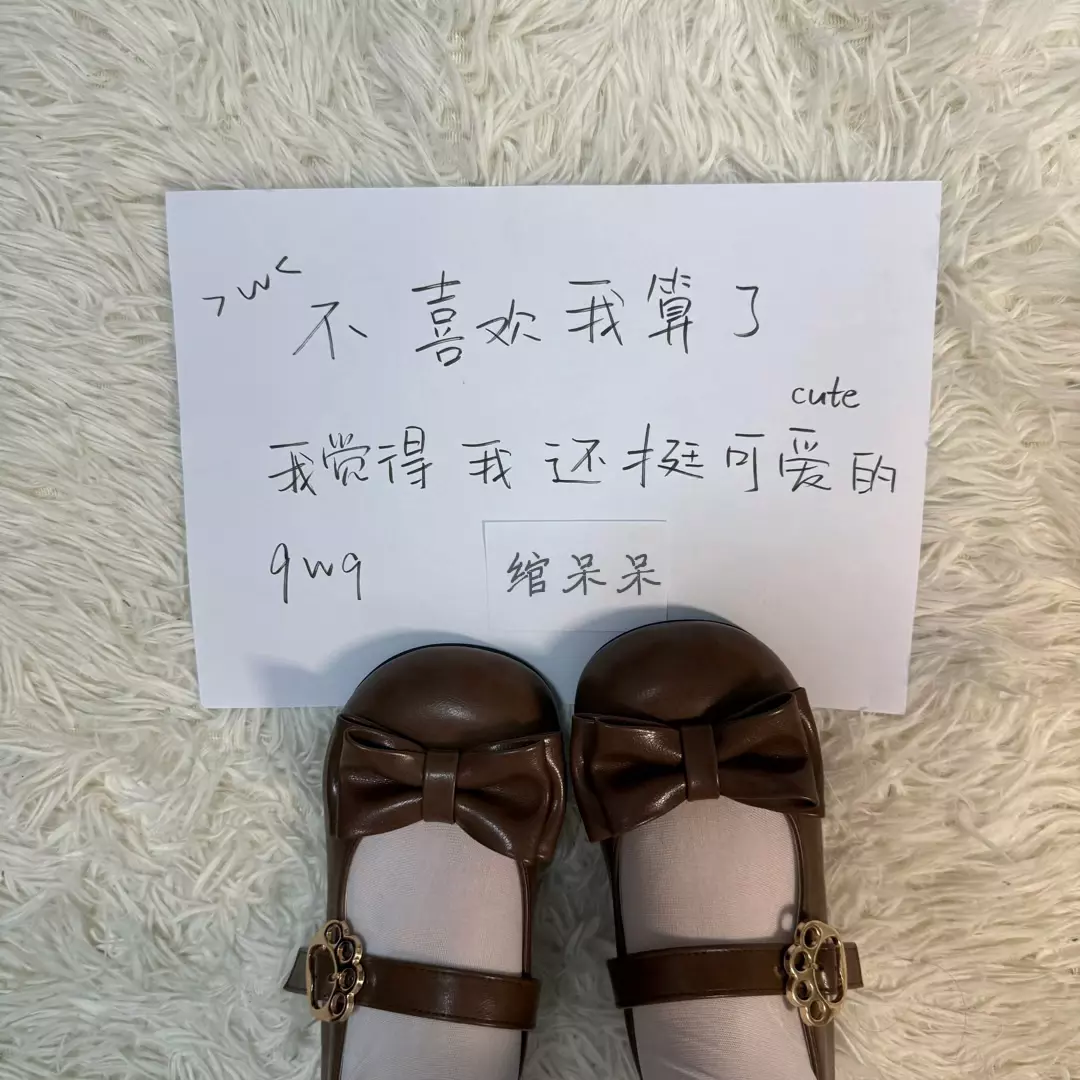 >w< 不喜欢我算了
cute
我觉得我还挺可爱的
qwq 绾呆呆